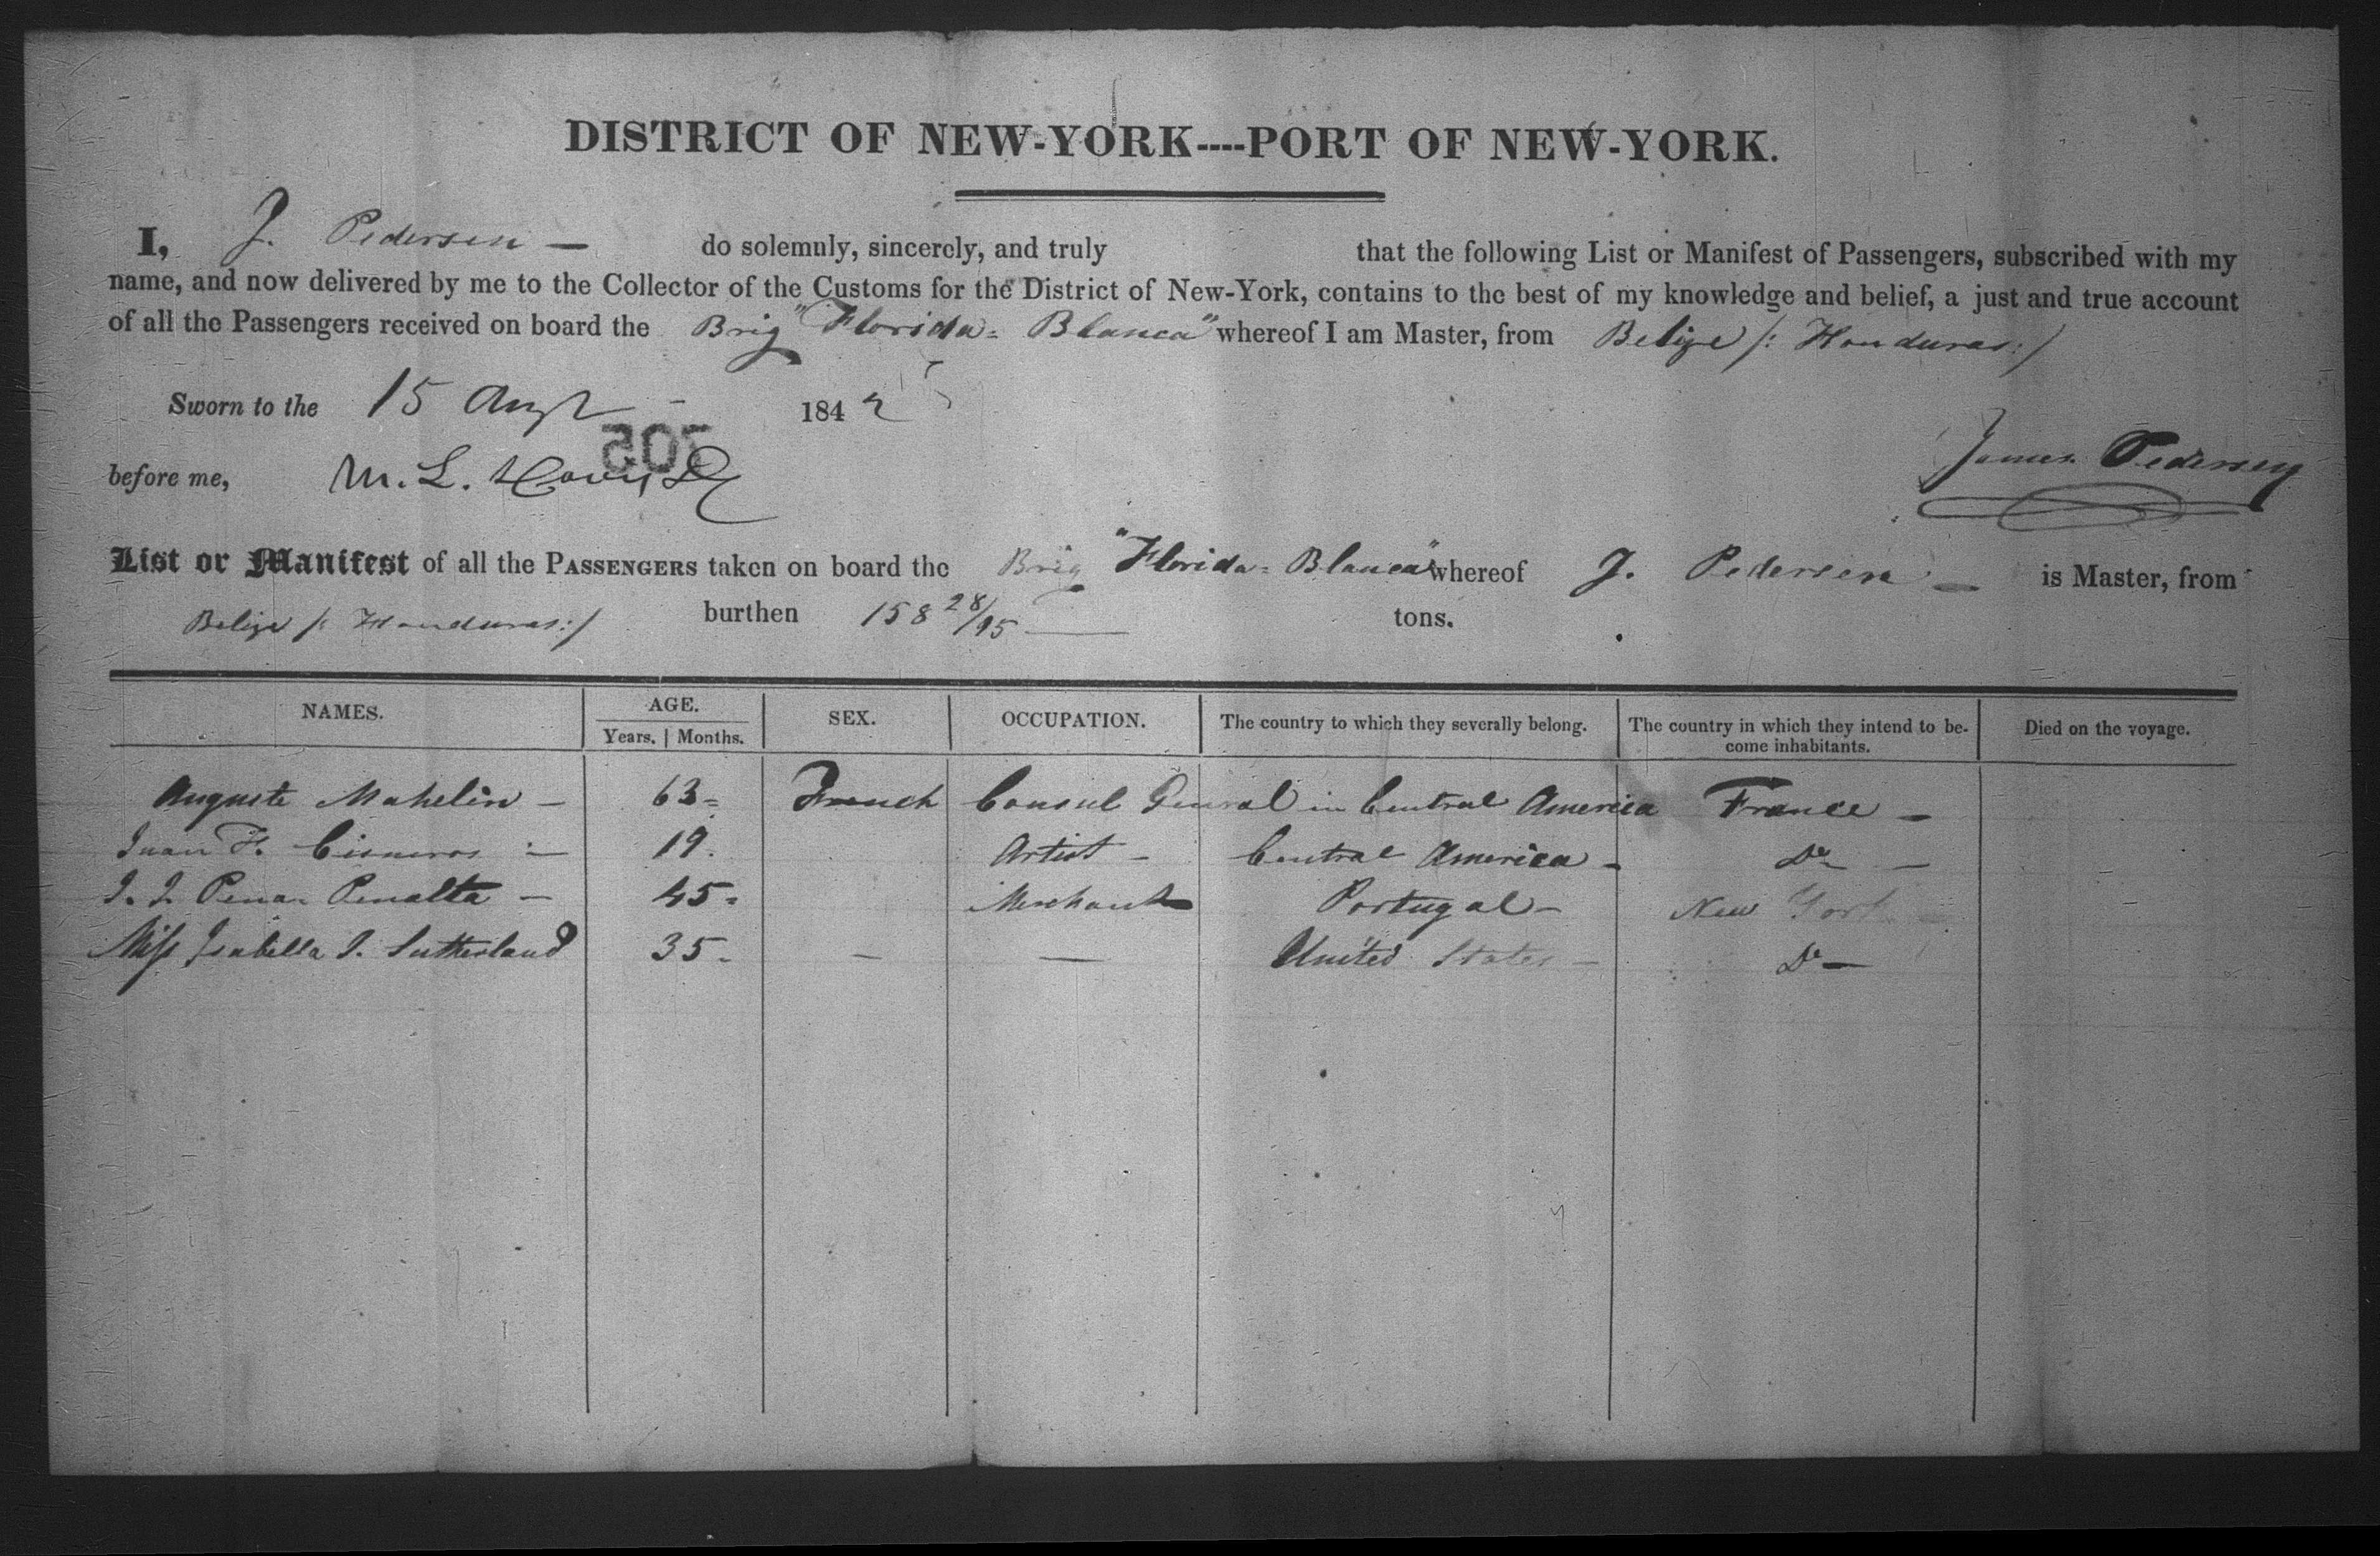 DISTRICT OF NEW-YORK----PORT OF NEW-YORK.
I, J. Pedersen — do solemnly, sincerely, and truly that the following List or Manifest of Passengers, subscribed with my
name, and now delivered by me to the Collector of the Customs for the District of New-York, contains to the best of my knowledge and belief, a just and true account
of all the Passengers received on board the Brig "Florida=Blanca" whereof I am Master, from Belize /: Honduras:/
Sworn to the 15 Augt - 184
before me, M. L.
James Pedersen
List or Manifest of all the PASSENGERS taken on board the Brig "Florida=Blanca" whereof J. Pedersen — is Master, from
Belize /: Honduras:/ burthen 158 28/95 — tons.
NAMES. AGE. Years. | Months. SEX. OCCUPATION. The country to which they severally belong. The country in which they intend to be-come inhabitants. Died on the voyage.
Auguste Mahelin — 63= French Consul General in Central America France —
Juan F. Cisneros 19. Artist — Central America — Do —
J. J. Pena Penalta — 45= Merchant Portugal — New York
Miss Isabella J. Sutherland 35- — — United States — Do —